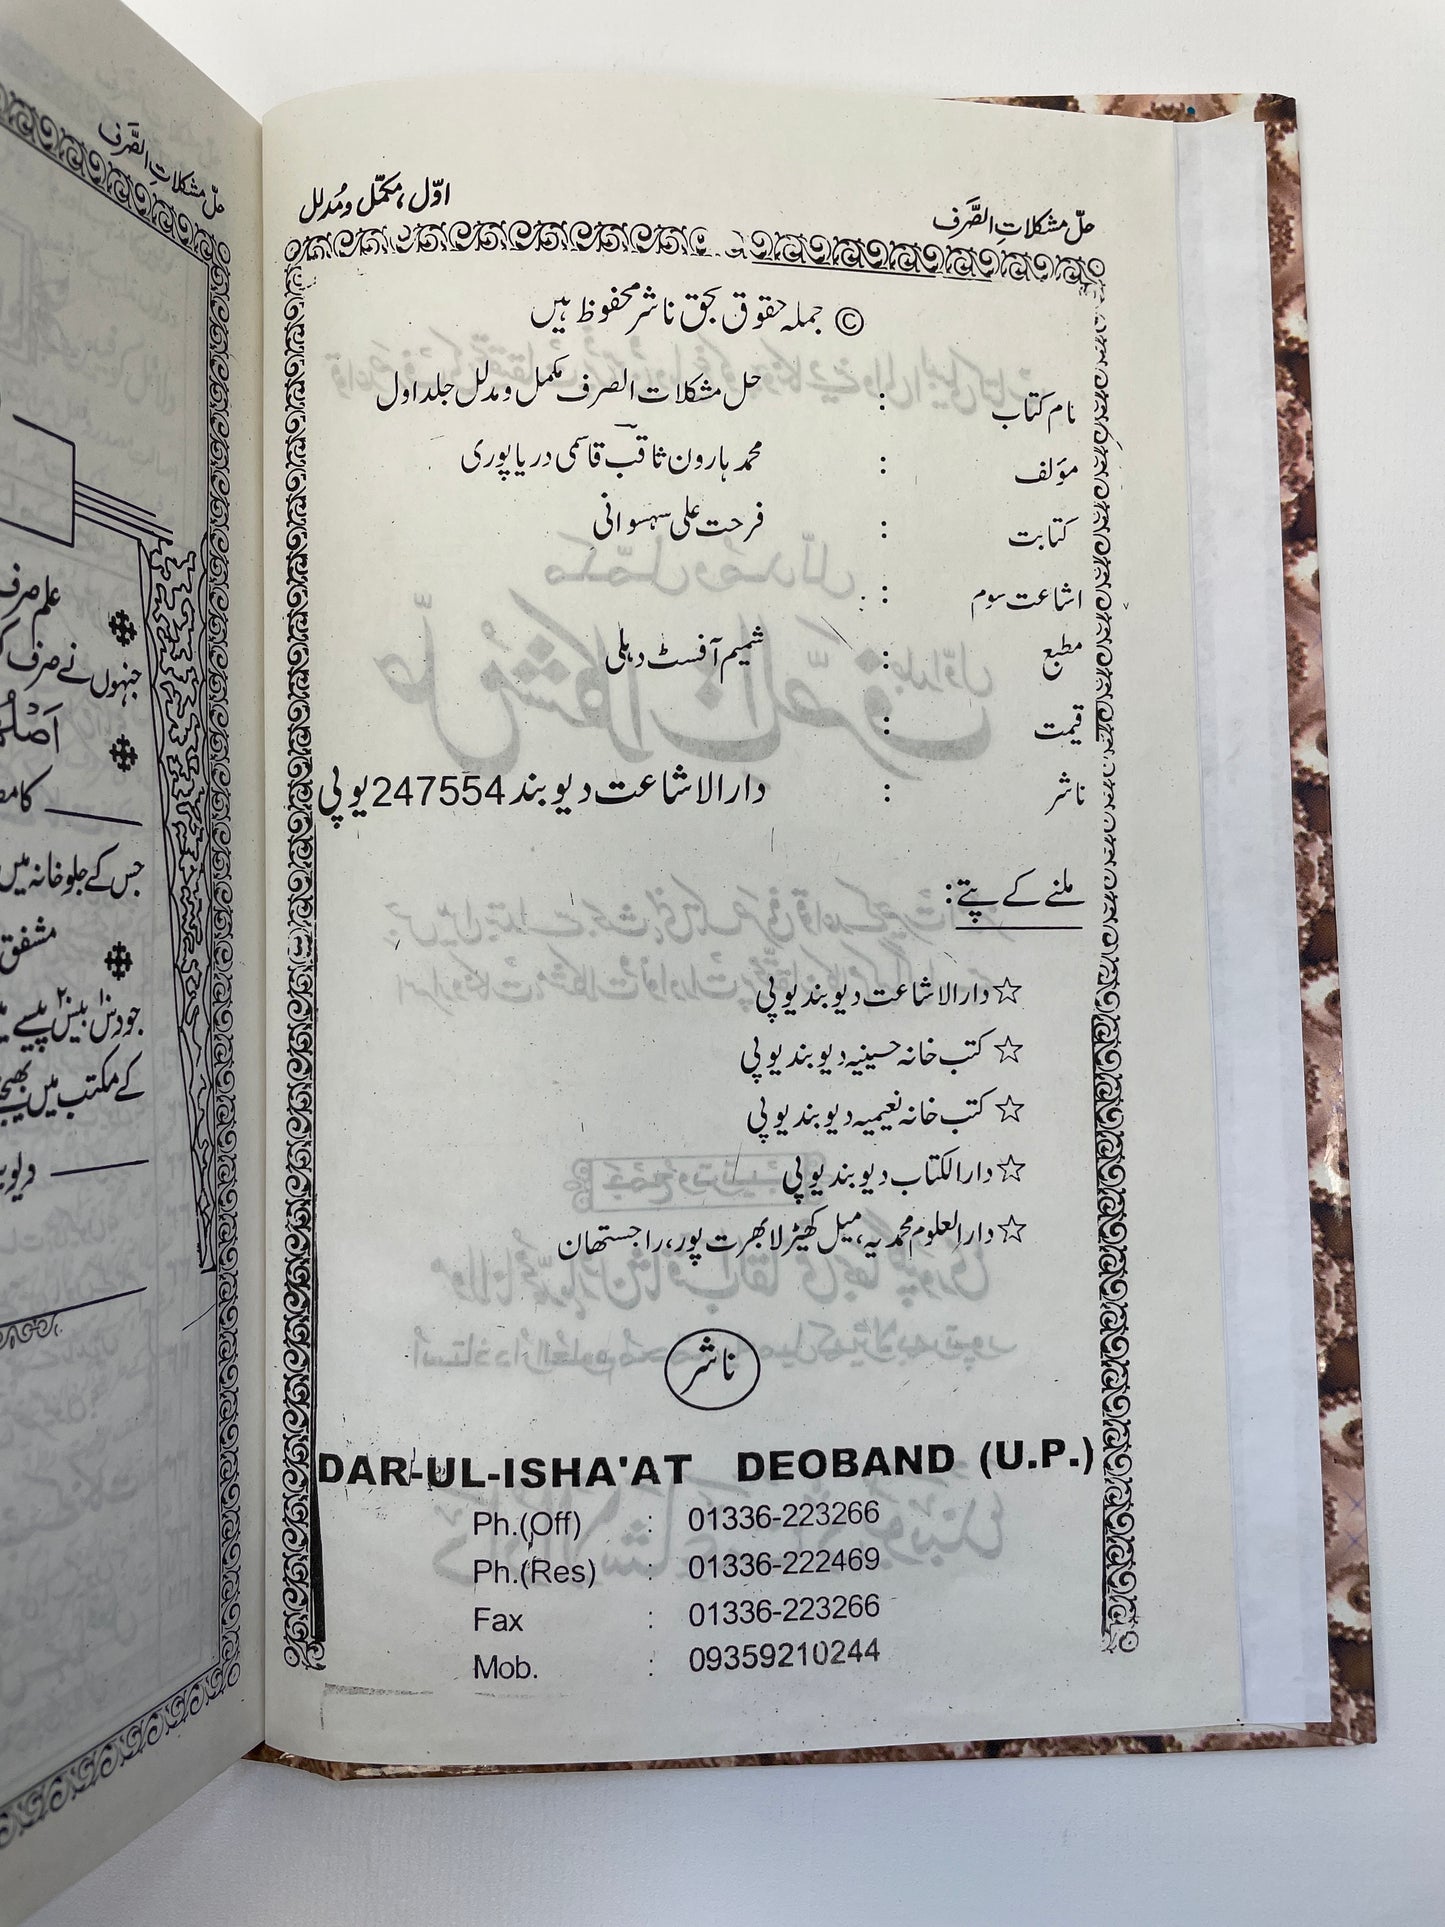 حلّ مشکلاتِ الصَّرف
اوّل، مکمّل و مُدلل
© جملہ حقوق بحق ناشر محفوظ ہیں
نام کتاب : حل مشکلات الصرف مکمل و مدلل جلد اول
مؤلف : محمد ہارون ثاقب قاسمی دریاپوری
کتابت : فرحت علی سہسوانی
اشاعت سوم :
مطبع : شمیم آفسٹ دہلی
قیمت :
ناشر : دارالاشاعت دیوبند 247554 یوپی
ملنے کے پتے:
☆ دارالاشاعت دیوبند یوپی
☆ کتب خانہ حسینیہ دیوبند یوپی
☆ کتب خانہ نعیمیہ دیوبند یوپی
☆ دارالکتاب دیوبند یوپی
☆ دارالعلوم محمدیہ، میل کھیڑلا بھرت پور، راجستھان
ناشر
DAR-UL-ISHA'AT DEOBAND (U.P.)
Ph.(Off) : 01336-223266
Ph.(Res) : 01336-222469
Fax : 01336-223266
Mob. : 09359210244
حلّ مشکلاتِ الصَّرف
علم صرف
جنہوں نے صرف
جس کے جلو خانہ میں
مشفق
کے مکتب میں